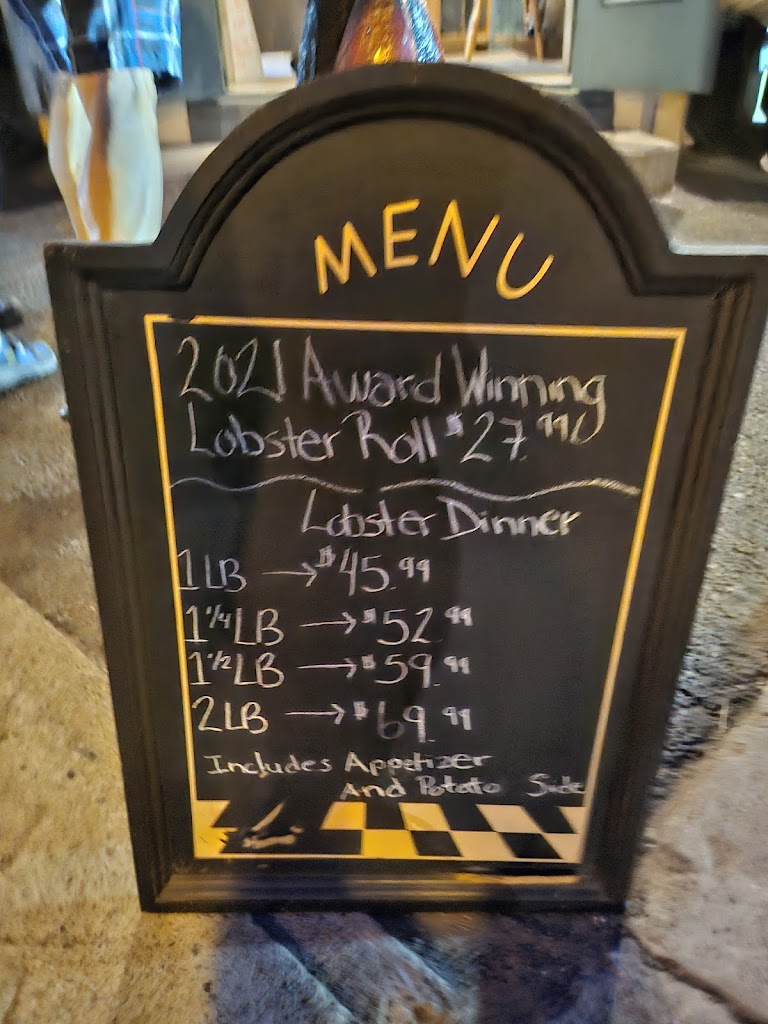 MENU
2021 Award Winning
Lobster Roll $27.99
Lobster Dinner
1 LB → $45.99
1 1/4 LB → $52.99
1 1/2 LB → $59.99
2 LB → $69.99
Includes Appetizer
And Potato Side